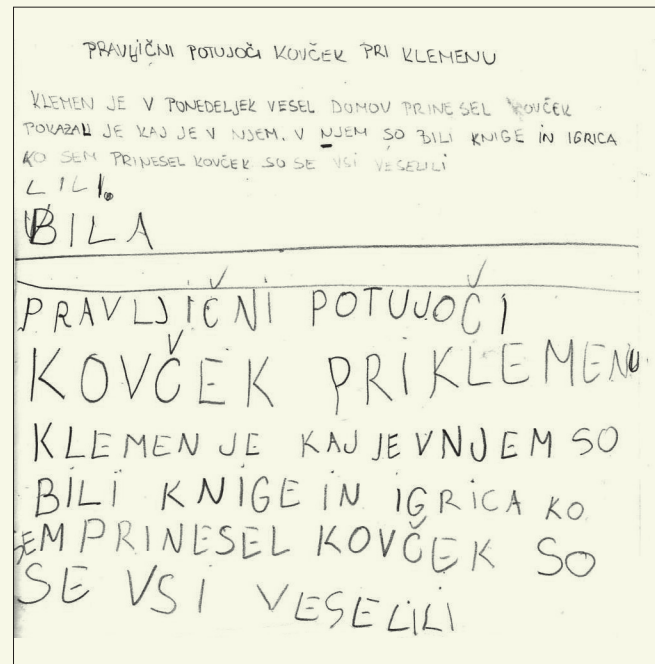 PRAVLJIČNI POTUJOČI KOVČEK PRI KLEMENU
KLEMEN JE V PONEDELJEK VESEL DOMOV PRINESEL KOVČEK
POKAZAL JE KAJ JE V NJEM. V NJEM SO BILI KNIGE IN IGRICA
KO SEM PRINESEL KOVČEK SO SE VSI VESELILI
LILI.
BILA
PRAVLJIČNI POTUJOČI
KOVČEK PRI KLEMENU
KLEMEN JE KAJ JE V NJEM SO
BILI KNIGE IN IGRICA KO
SEM PRINESEL KOVČEK SO
SE VSI VESELILI